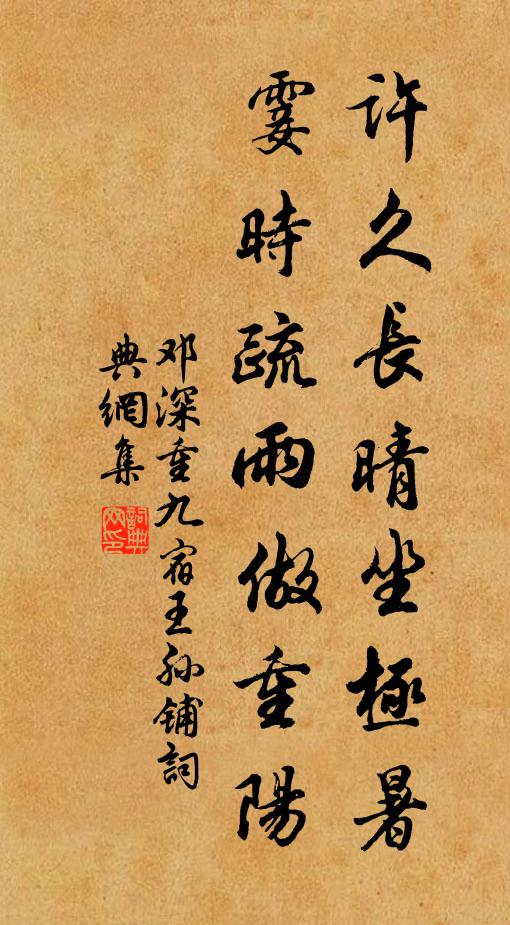 許久長晴坐極暑
霎時疏雨做重陽
邓深重九宿王孙鋪詞
典網集
詞典